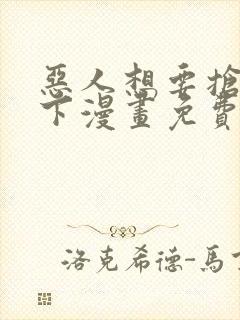 惡人想要搶
下漫畫免費
洛克希德-馬丁